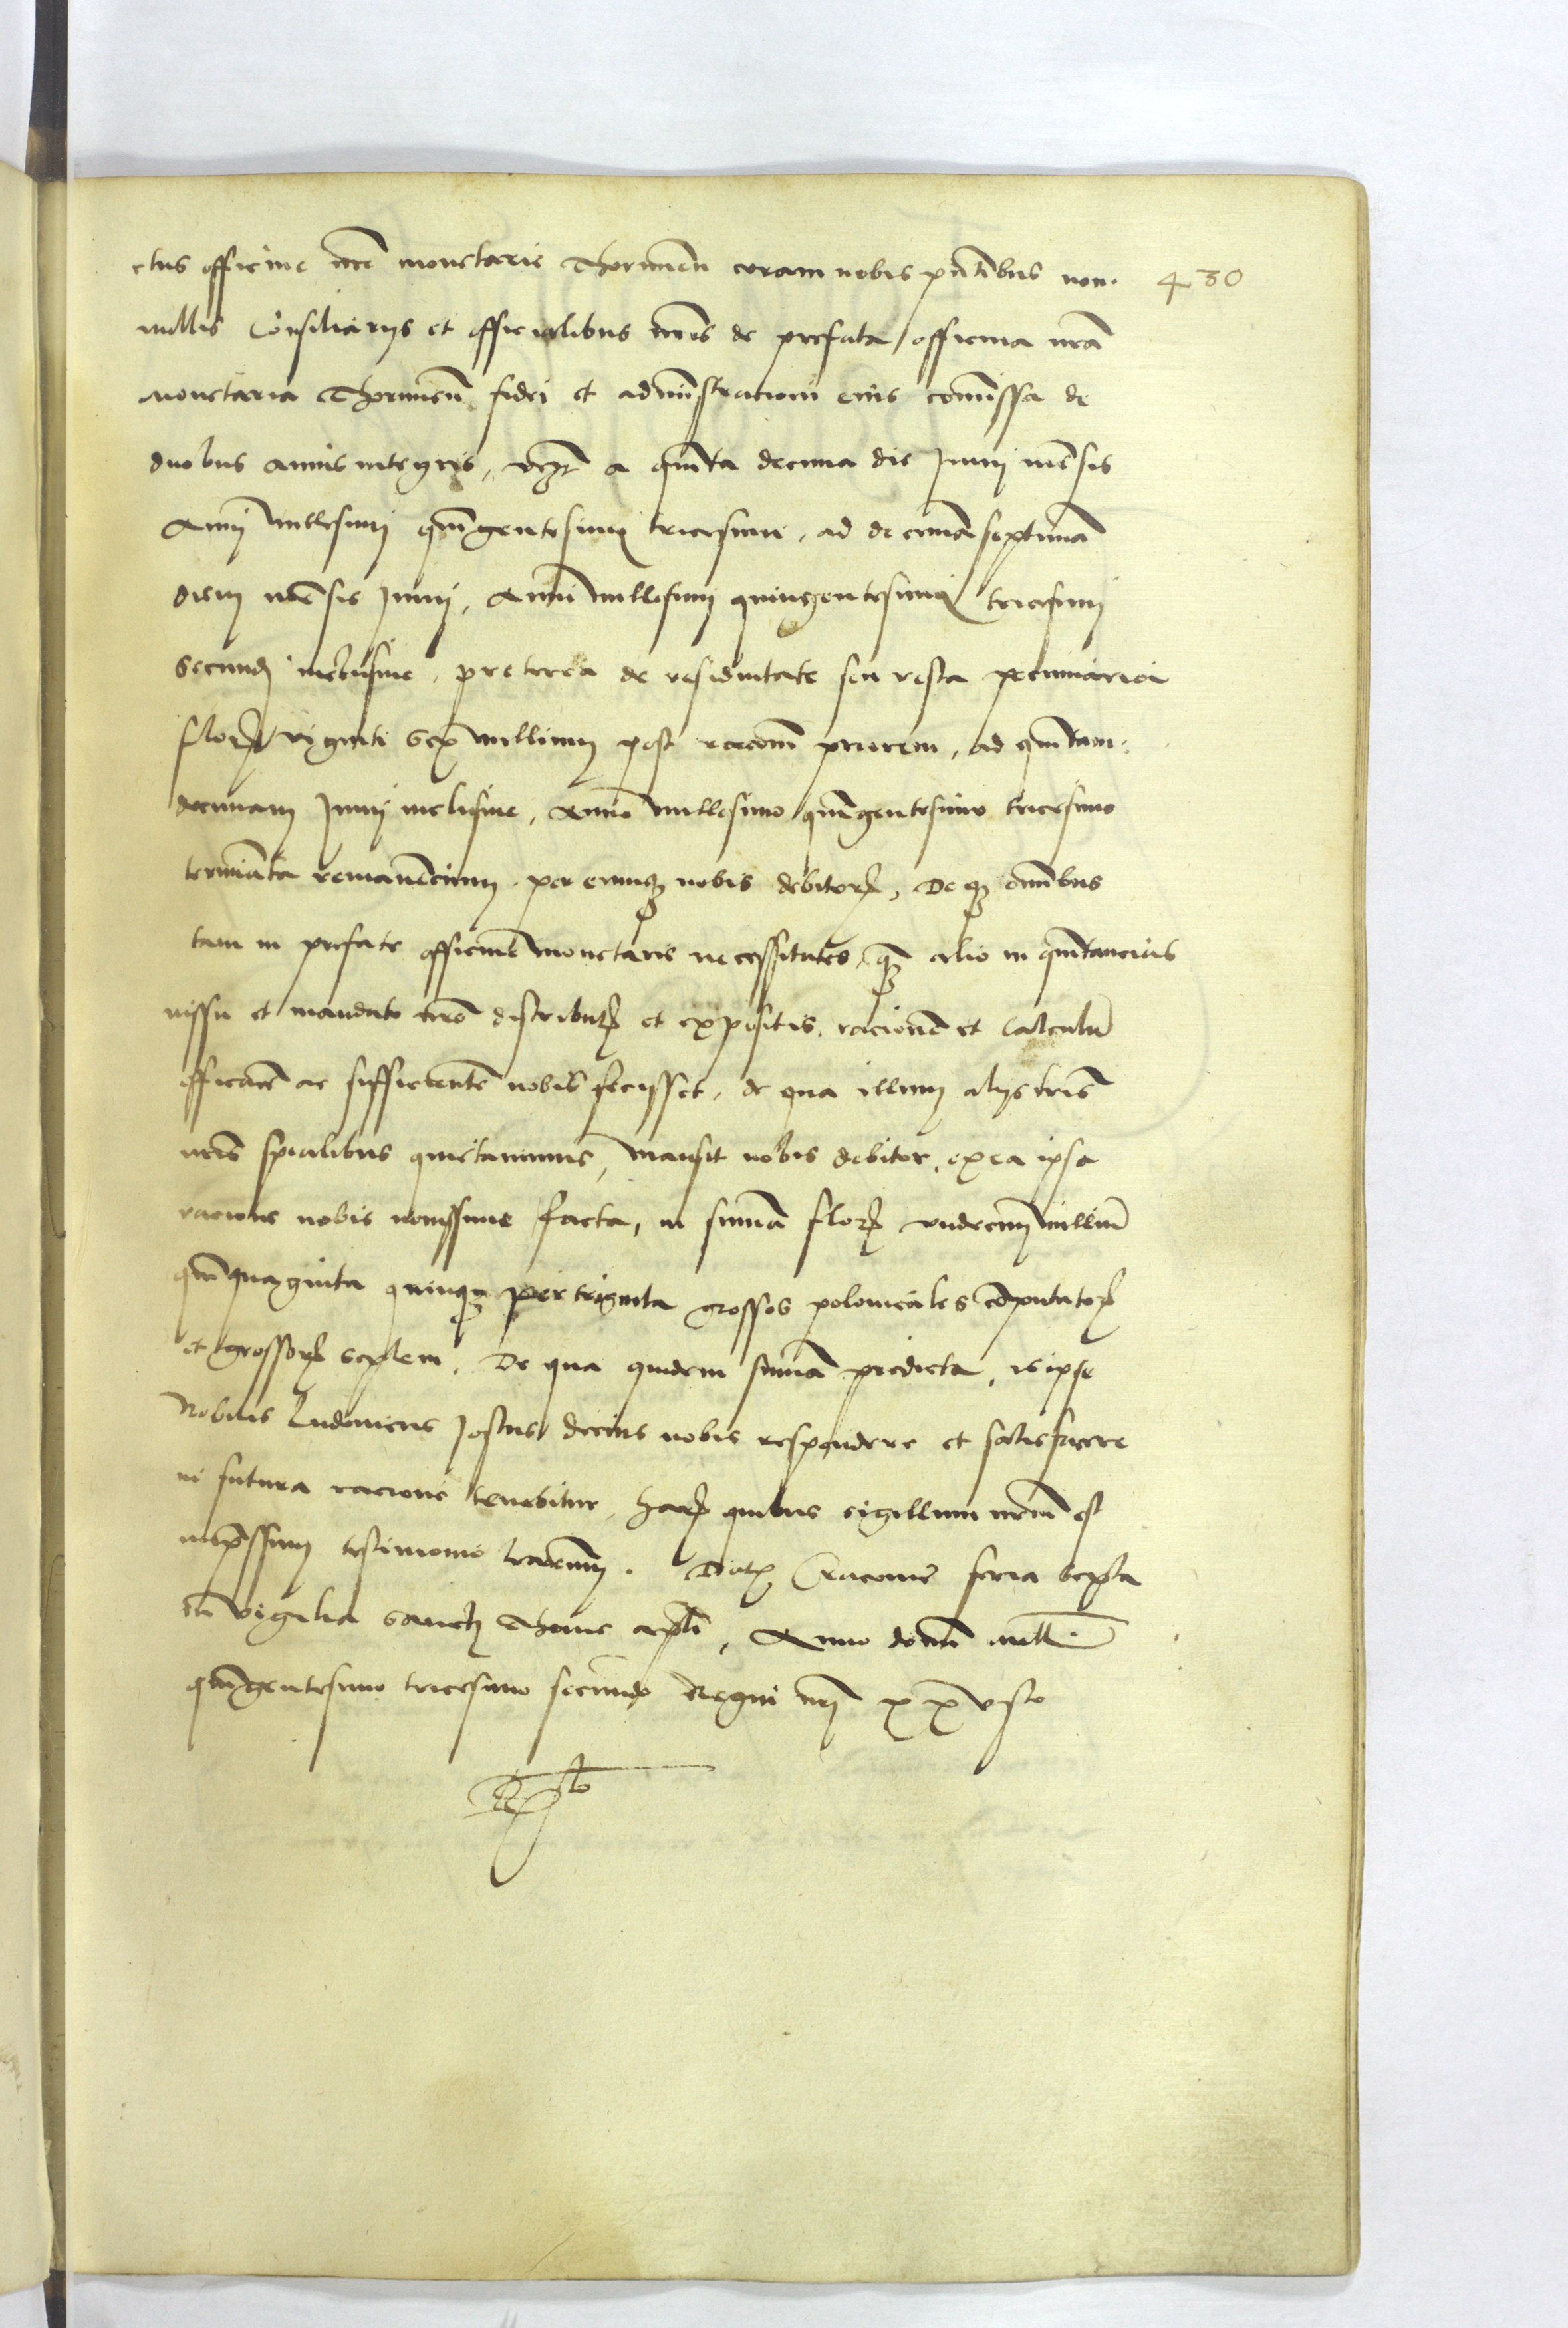 ctus officine nr̃e monetarie Thorunen̄ coram nobis pn̄tibus non- 430
nullis Consiliarijs et officialibus nr̃is de prefata officina nr̃a
Monetaria Thorunen̄ fidei et administracioni eius com̃issa de
duobus annis integris, vcz̃ a quinta decima die Junij men̄sis
Anni Millesimi quin̄gentesimi tricesimi, ad decimã septimã
diem men̄sis Junij, Anni millesimi quingentesimi tricesimi
secundi inclusiue, preterea de residuitate seu resta pecuniaria
floꝝ viginti sex millium post racionẽ priorem, ad quin̄tam
decimam Junij inclusiue, Anno millesimo quin̄gentesimo tricesimo
terminãta remanẽcium per eumqꝫ nobis debitoꝝ, De qꝫ om̃ibus
tam in prefate officine monetarie necessitates, qꝫ alio in quittanciis
iussu et mandato nr̃o distributꝭ et expositis, racionẽ et Calculũ
efficacẽ ac sufficientẽ nobis fecisset, de qua illum alijs lr̃is
nr̃is spĩalibus quietauimus, Mansit nobis debitor, ex ea ipsa
racione nobis nouissime facta, in sum̃a floꝝ vndecim milliũ
quinquaginta quinqꝫ per triginta grossos polonicales cõputatoꝝ
et grossoꝝ septem. De qua quidem sum̃a predicta, is ipse
Nobilis Ludouicus Jostus decius nobis respondere et satisfacere
in futura racione tenebitur, Haꝝ quibus sigillum nrm̃ est
imp̃ssum testimonio lrarum̃. Datꝭ Cracouie feria sexta
in vigilia sancti Thome apl̃i, Anno dom̃i mill̃
quin̄gentesimo tricesimo secundo Regni nrĩ xxvsto